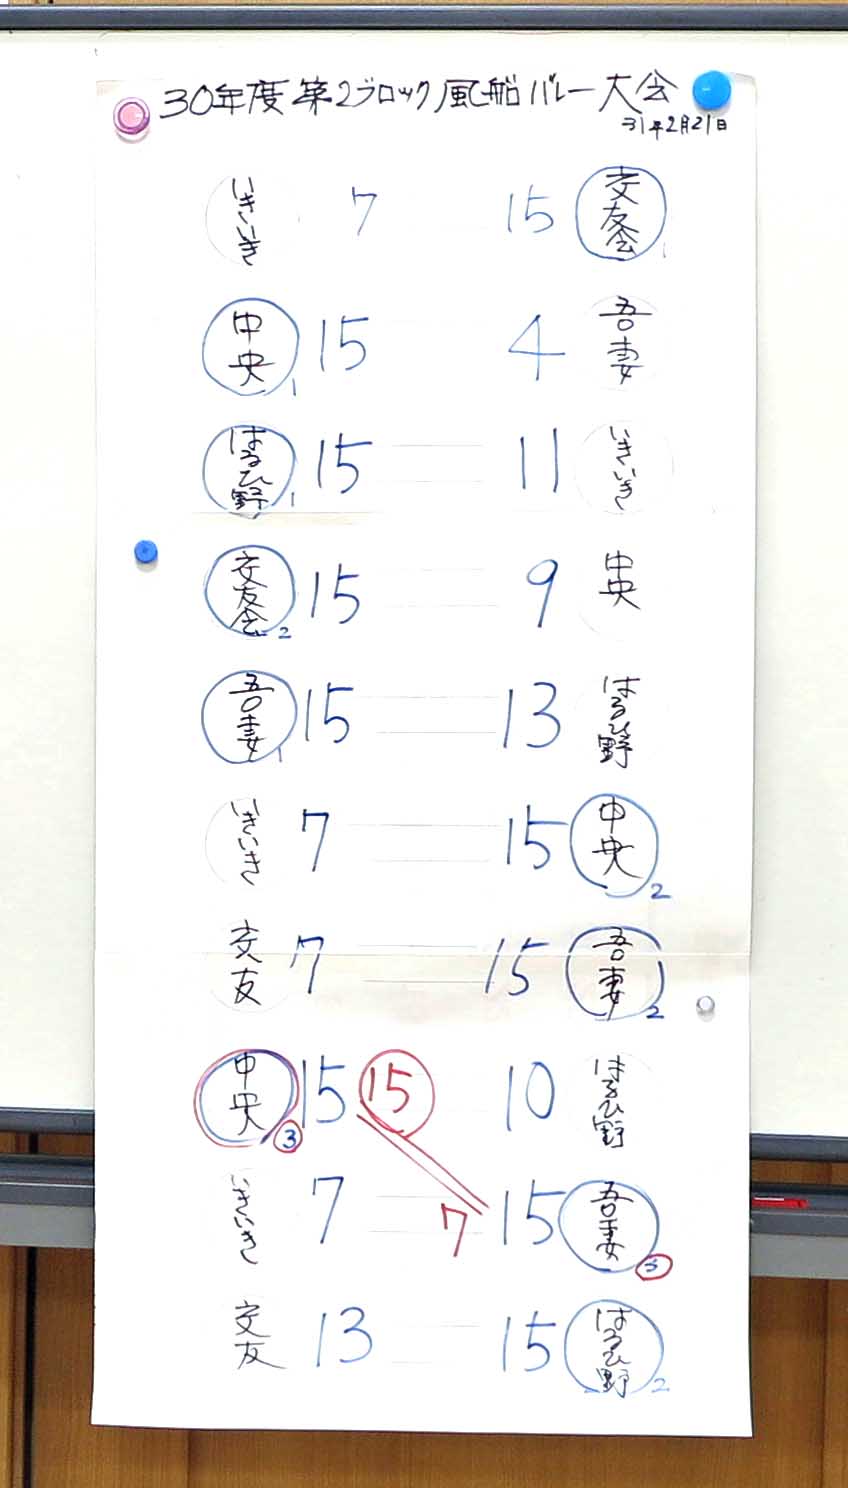 30年度第2ブロック風船バレー大会
31年2月21日
いきいき 7 15 交友会 1
中央 1 15 4 吾妻
はるひ野 1 15 11 いきいき
交友会 2 15 9 中央
吾妻 1 15 13 はるひ野
いきいき 7 15 中央 2
交友 7 15 吾妻 2
中央 3 15 15 10 はるひ野
いきいき 7 7 15 吾妻 3
交友 13 15 はるひ野 2